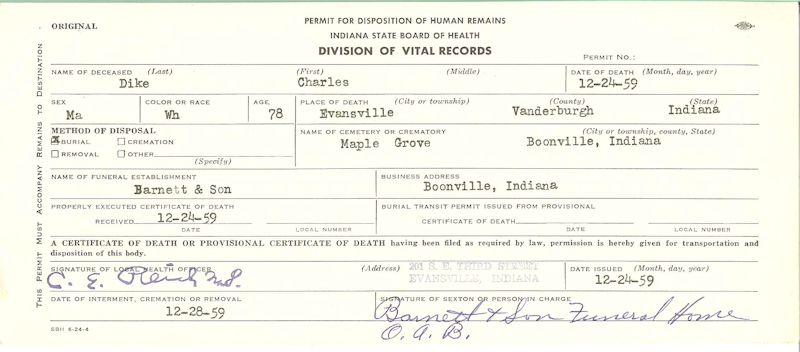 ORIGINAL
PERMIT FOR DISPOSITION OF HUMAN REMAINS
INDIANA STATE BOARD OF HEALTH
DIVISION OF VITAL RECORDS
PERMIT NO.:
THIS PERMIT MUST ACCOMPANY REMAINS TO DESTINATION
NAME OF DECEASED (Last) (First) (Middle) DATE OF DEATH (Month, day, year)
Dike Charles 12-24-59
SEX COLOR OR RACE AGE PLACE OF DEATH (City or township) (County) (State)
Ma Wh 78 Evansville Vanderburgh Indiana
METHOD OF DISPOSAL NAME OF CEMETERY OR CREMATORY (City or township, county, State)
☒ BURIAL ☐ CREMATION Maple Grove Boonville, Indiana
☐ REMOVAL ☐ OTHER
(Specify)
NAME OF FUNERAL ESTABLISHMENT BUSINESS ADDRESS
Barnett & Son Boonville, Indiana
PROPERLY EXECUTED CERTIFICATE OF DEATH BURIAL TRANSIT PERMIT ISSUED FROM PROVISIONAL
RECEIVED 12-24-59 CERTIFICATE OF DEATH
DATE LOCAL NUMBER DATE LOCAL NUMBER
A CERTIFICATE OF DEATH OR PROVISIONAL CERTIFICATE OF DEATH having been filed as required by law, permission is hereby given for transportation and
disposition of this body.
SIGNATURE OF LOCAL HEALTH OFFICER (Address) 201 S. E. THIRD STREET DATE ISSUED (Month, day, year)
C. E. EVANSVILLE, INDIANA 12-24-59
DATE OF INTERMENT, CREMATION OR REMOVAL SIGNATURE OF SEXTON OR PERSON IN CHARGE
12-28-59 Barnett & Son Funeral Home
O. A. B.
SBH 6-24-4